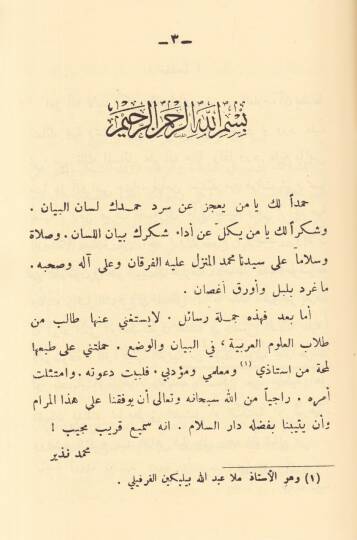 — ٣ —
بسم الله الرحمن الرحيم
حمداً لك يا من يعجز عن سرد حمدك لسان البيان .
وشكراً لك يا من يكلّ عن أداء شكرك بيان اللسان . وصلاة
وسلاماً على سيدنا محمد المنزل عليه الفرقان وعلى آله وصحبه .
ما غرد بلبل وأورق أغصان .
أما بعد فهذه جملة رسائل . لايستغني عنها طالب من
طلاب العلوم العربية ، في البيان والوضع . حملتني على طبعها
لمحة من استاذي (١) ومعلمي ومؤدبي . فلبيت دعوته . وامتثلت
أمره . راجياً من الله سبحانه وتعالى أن يوفقنا على هذا المرام
وأن يثيبنا بفضله دار السلام . انه سميع قريب مجيب !
محمد نذير
(١) وهو الأستاذ ملا عبد الله بيليكين الفرفيلي .